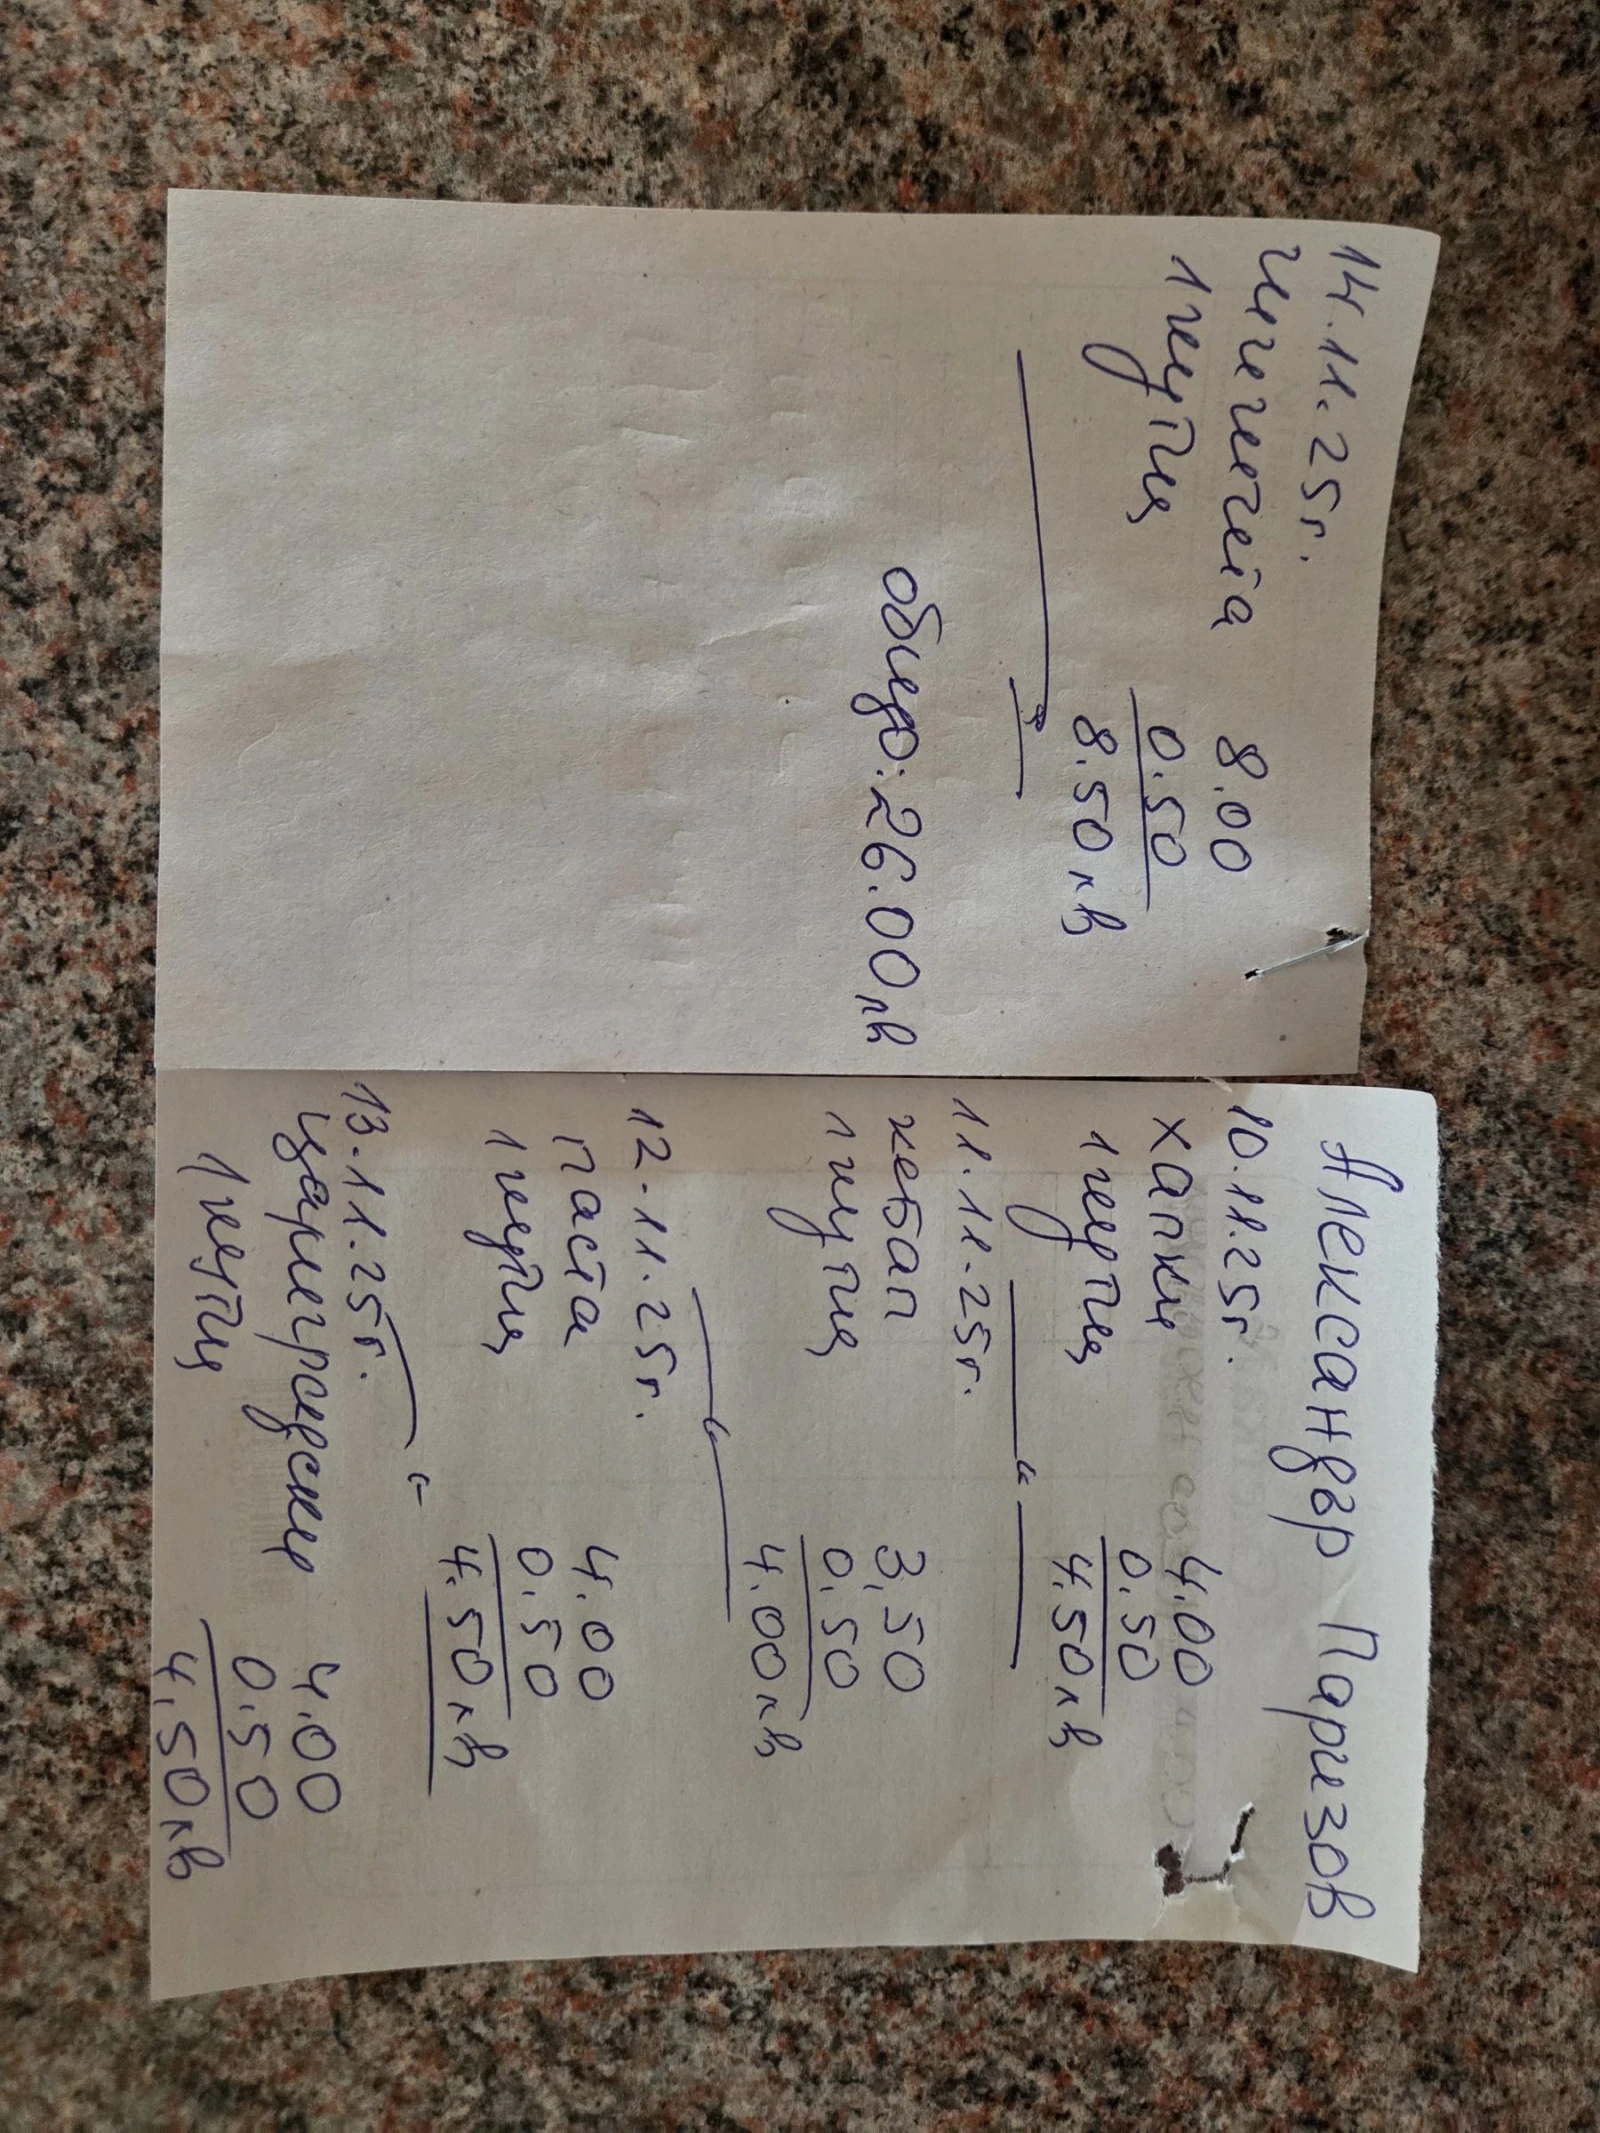 Александър Паризов
10.11.25г.
хапки 4.00
1 кутия 0.50
4.50лв
11.11.25г.
кебап 3,50
1 кутия 0.50
4.00лв
12.11.25г.
паста 4.00
1 кутия 0.50
4.50лв
13.11.25г.
цариградски 4.00
1 кутия 0.50
4.50лв
14.11.25г.
8.00
1 кутия 0.50
8.50лв
общо: 26.00лв